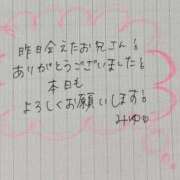 昨日会えたお兄さん!
ありがとうございました!
本日も
よろしくお願いします!
みゆ